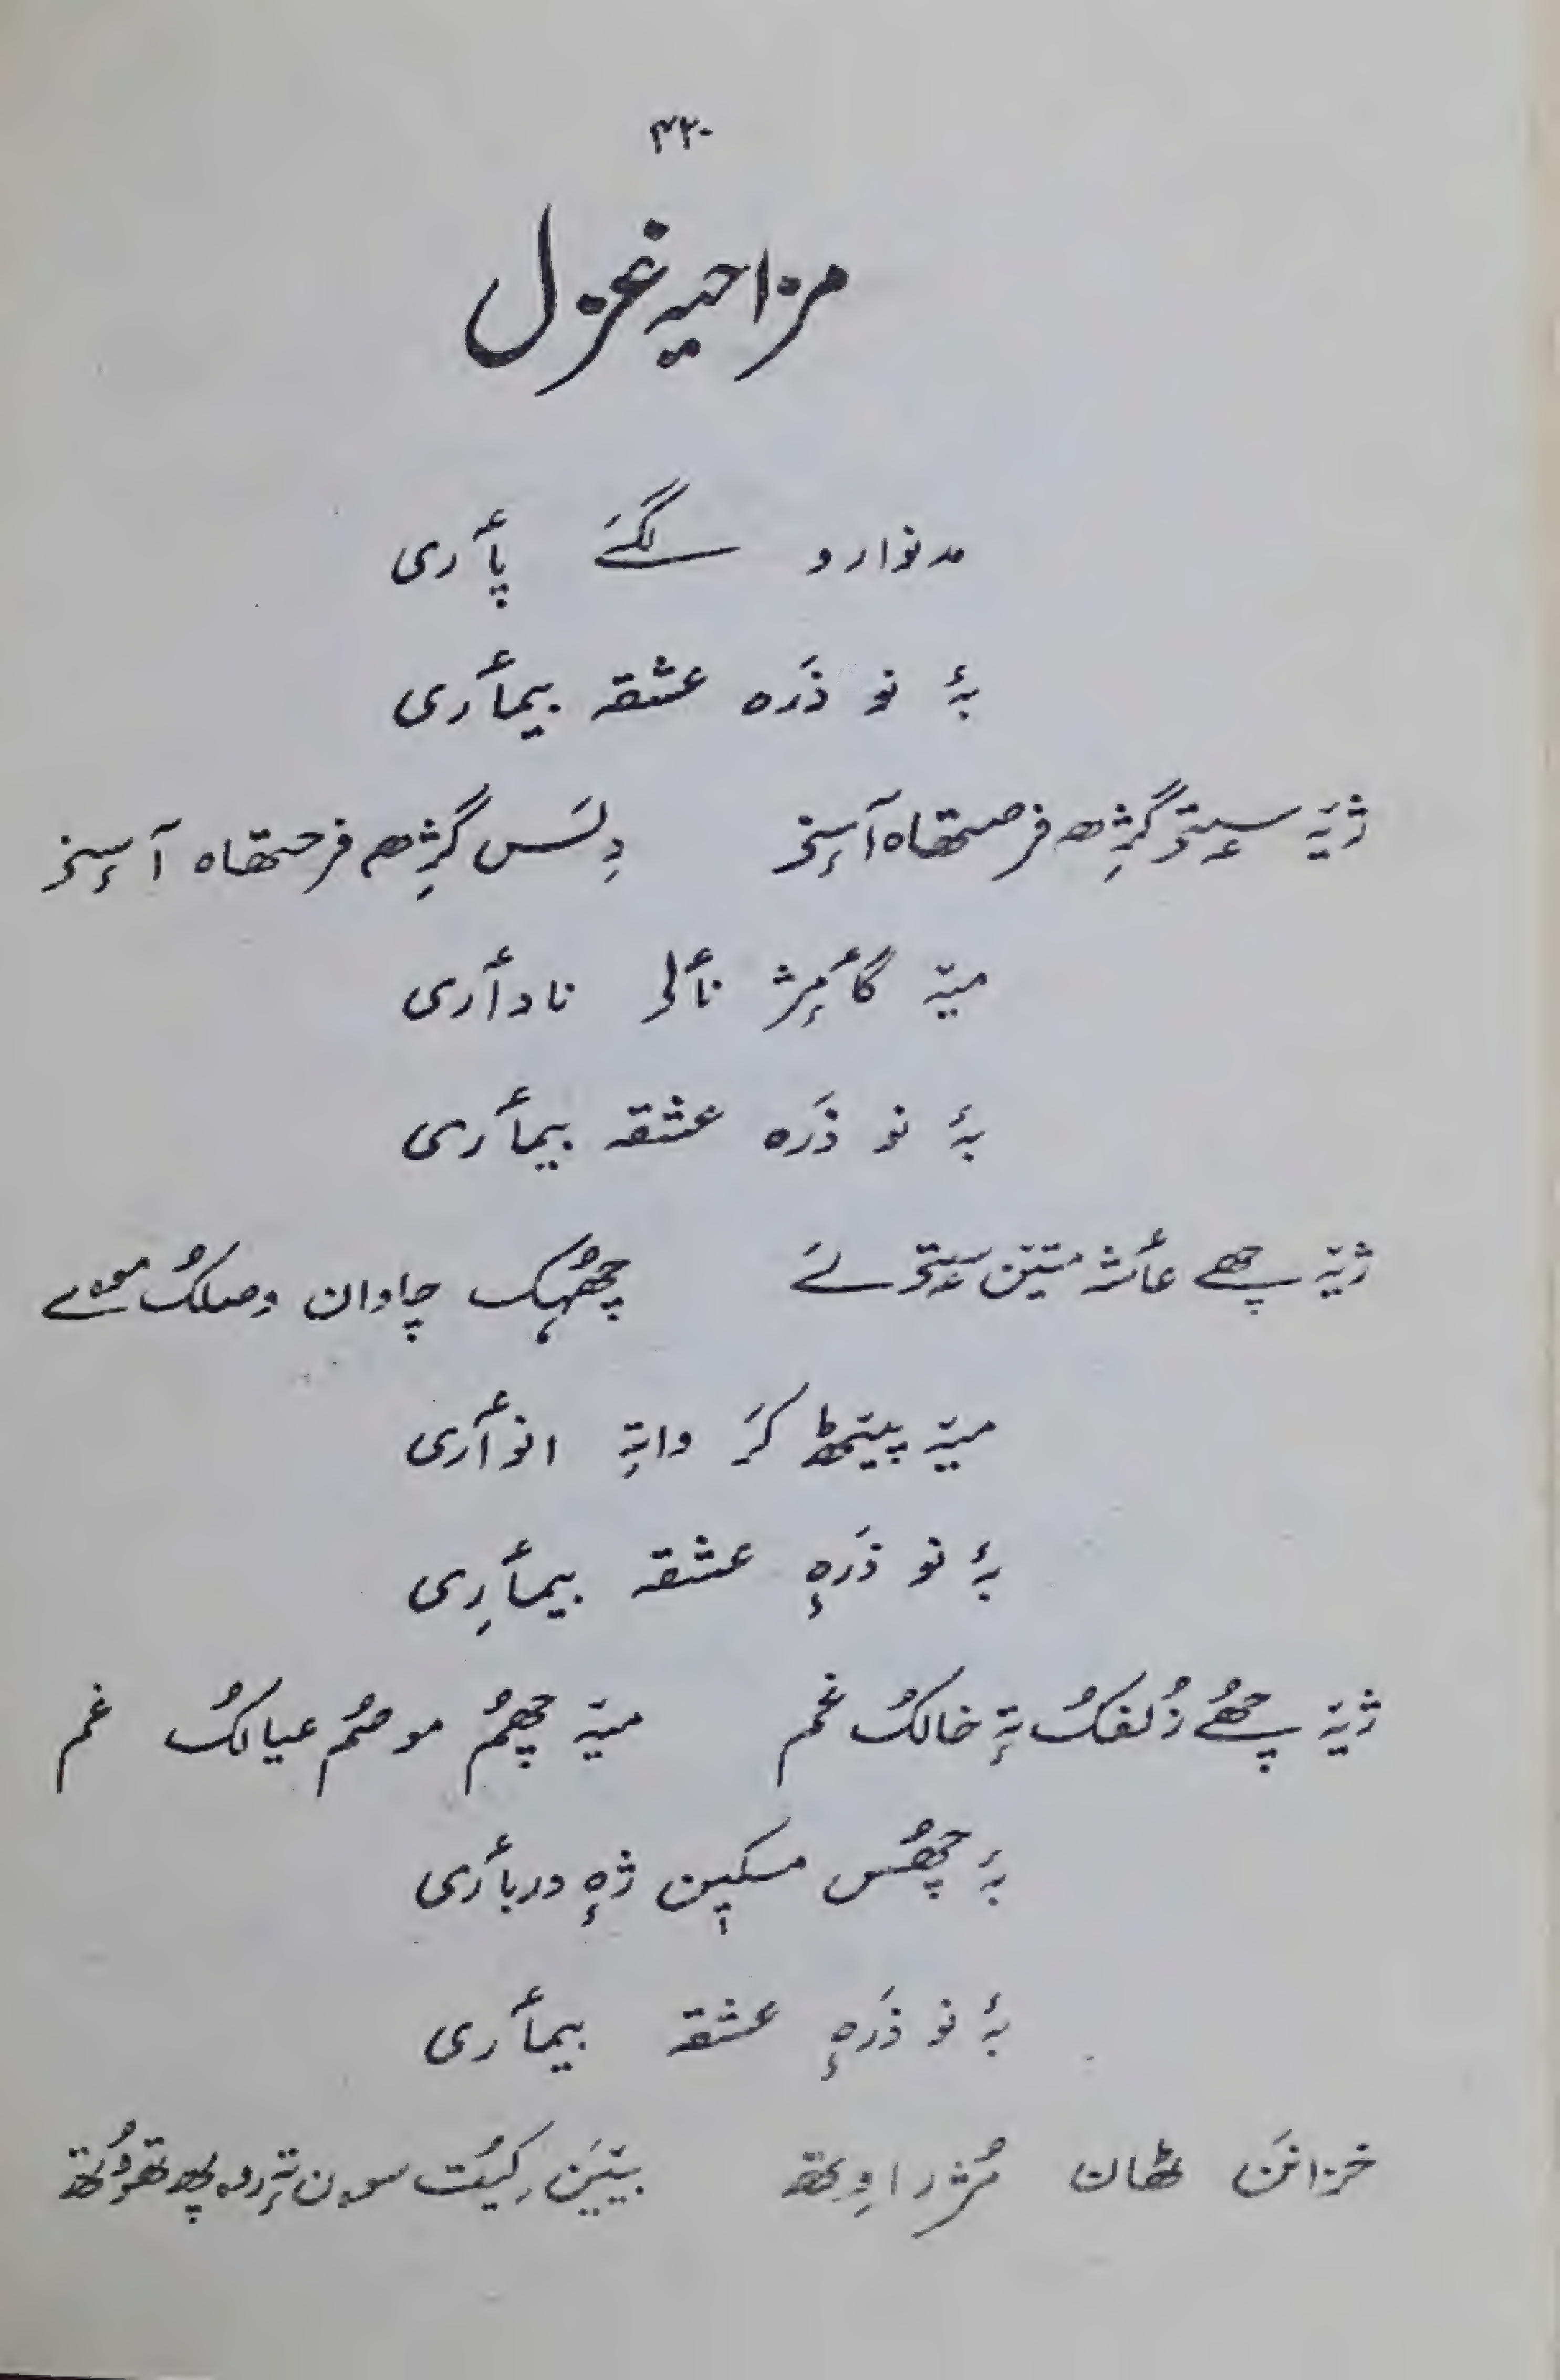 ۴۲۰
مزاحیہ غزل
مدنوارو لگے پأری
بہٕ نو ذَرہ عشقہ بیمأری
ژیۃ سیٖتۍ گژِھ فرصتھاہ آسٕنۍ دِلَس گژِھم فرحتھاہ آسٕنۍ
میۃ گأمٕژ نألۍ نادأری
بہٕ نو ذَرہ عشقہ بیمأری
ژیۃ چھے عأشہ متین سیتۍ لے چھُہک چاوان وصلکُ مے
میۃ پیٹھ کَر واتہِ انوأری
بہٕ نو ذَرہٕ عشقہ بیمأرِی
ژیۃ چھُے زُلفکُ تہٕ خالکُ غم میۃ چھُمُ موصُم عیالکُ غم
بہٕ چھُس مسکین ژہٕ دربأری
بہٕ نو ذَرہٕ عشقہ بیمأری
خزانَن ٹھان مُژراوِتھ بییَن کِیُت سون تہٕ رۄپھ تھوٚوُتھ